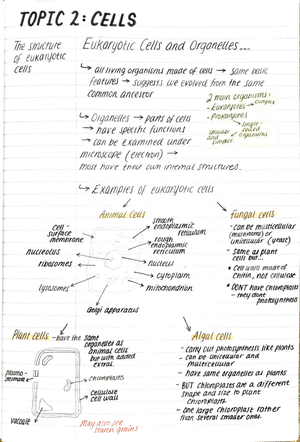 TOPIC 2: CELLS
The structure
of eukaryotic
cells
Eukaryotic Cells and Organelles...
↳ all living organisms made of cells → same basic
features → suggests we evolved from the same
common ancestor
2 main organisms:
- Eukaryotes → complex
- Prokaryotes
↳ single-
celled
organisms
smaller
and
simpler
↳ Organelles → parts of cells
→ have specific functions
→ can be examined under
microscope (electron) →
most have their own internal structures.
↳ Examples of eukaryotic cells
Animal Cells
cell-
surface
membrane
nucleolus
ribosomes
lysosomes
Golgi apparatus
smooth
endoplasmic
reticulum
rough
endoplasmic
reticulum
nucleus
cytoplasm
mitochondrion
Fungal cells
- Can be multicellular
(mushrooms) or
unicellular (yeast)
- Same as plant
cells but...
• Cell walls made of
chitin, not cellulose
• DON'T have chloroplasts
- they don't
photosynthesise
Plant cells - have the same
organelles as
animal cells
but with added
extras.
plasmo-
desmata
chloroplasts
Cellulose
cell walls
vacuole
May also see
starch grains
Algal cells
- Carry out photosynthesis like plants
- can be unicellular and
multicellular
- have same organelles as plants
- BUT chloroplasts are a different
shape and size to plant
chloroplasts
- one large chloroplast rather
than several smaller ones.